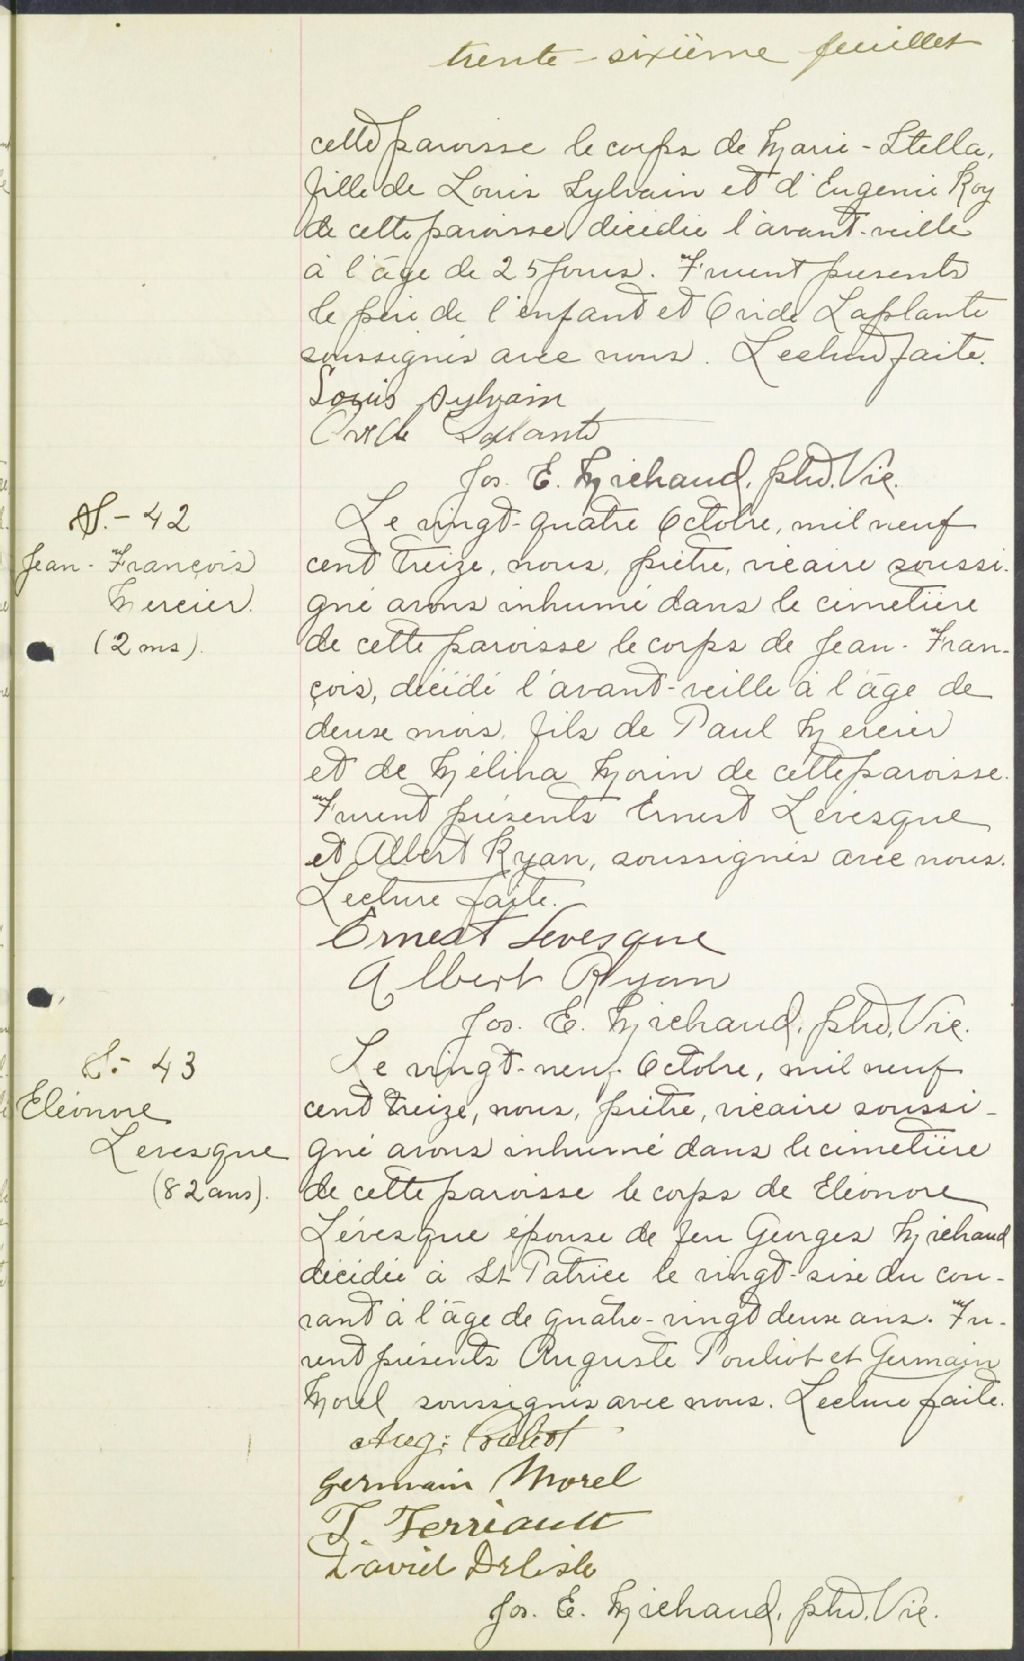 trente-sixième feuillet
cette paroisse le corps de Marie-Stella,
fille de Louis Sylvain et d'Eugenie Roy
de cette paroisse, décédée l'avant-veille
à l'âge de 25 jours. Furent présents
le père de l'enfant et Ovide Laplante
soussignés avec nous. Lecture faite.
Louis Sylvain
Ovide Laplante
Jos. E. Michaud, ptre, Vic.
S.- 42
Jean-François
Mercier.
(2 ms).
Le vingt-quatre Octobre, mil neuf
cent treize, nous, prêtre, vicaire soussi-
gné avons inhumé dans le cimetière
de cette paroisse le corps de Jean-Fran-
çois, décédé l'avant-veille à l'âge de
deux mois, fils de Paul Mercier
et de Mélina Morin de cette paroisse.
Furent présents Ernest Lévesque
et Albert Ryan, soussignés avec nous.
Lecture faite.
Ernest Levesque
Albert Ryan
Jos. E. Michaud, ptre, Vic.
S.- 43
Eléonore
Levesque
(82 ans).
Le vingt-neuf Octobre, mil neuf
cent treize, nous, prêtre, vicaire soussi-
gné avons inhumé dans le cimetière
de cette paroisse le corps de Eléonore
Lévesque épouse de feu Georges Michaud
décédée à St Patrice le vingt-six du cou-
rant à l'âge de quatre-vingt deux ans. Fu-
rent présents Auguste Pouliot et Germain
Morel soussignés avec nous. Lecture faite.
Aug: Pouliot
Germain Morel
J. Terriault
David Delisle
Jos. E. Michaud, ptre, Vic.